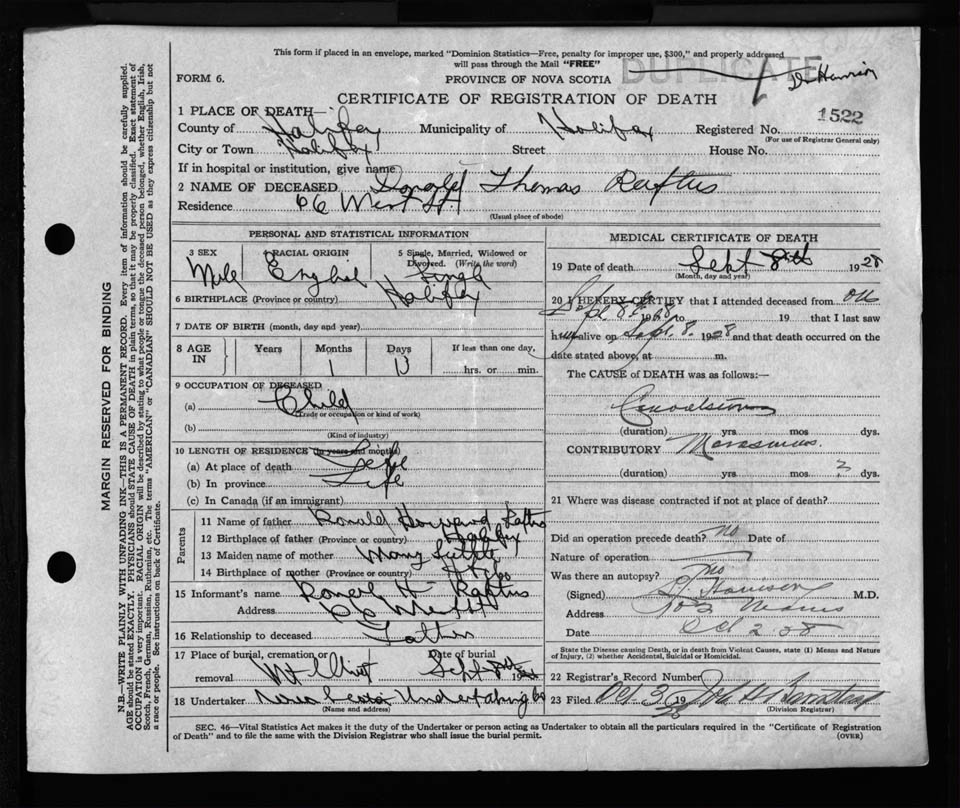 This form if placed in an envelope, marked "Dominion Statistics—Free, penalty for improper use, $300," and properly addressed
will pass through the Mail "FREE"
DUPLICATE
FORM 6.
PROVINCE OF NOVA SCOTIA
Dr Harrison
CERTIFICATE OF REGISTRATION OF DEATH
1522
1 PLACE OF DEATH—
County of Halifax Municipality of Halifax Registered No.
(For use of Registrar General only)
City or Town Halifax Street House No.
If in hospital or institution, give name
2 NAME OF DECEASED Donald Thomas Raftus
Residence 66 West St
(Usual place of abode)
PERSONAL AND STATISTICAL INFORMATION
3 SEX Male
4 RACIAL ORIGIN English
5 Single, Married, Widowed or Divorced. (Write the word) Single
6 BIRTHPLACE (Province or country) Halifax
7 DATE OF BIRTH (month, day and year)
8 AGE IN Years Months Days If less than one day,
1 13 hrs. or min.
9 OCCUPATION OF DECEASED
(a) Child
(Trade or occupation or kind of work)
(b)
(Kind of industry)
10 LENGTH OF RESIDENCE (in years and months)
(a) At place of death Life
(b) In province Life
(c) In Canada (if an immigrant)
Parents
11 Name of father Ronald Howard Raftus
12 Birthplace of father (Province or country) Halifax
13 Maiden name of mother Mary
14 Birthplace of mother (Province or country)
15 Informant's name Ronald H Raftus
Address 66 West St
16 Relationship to deceased Father
17 Place of burial, cremation or removal Mt Olivet
Date of burial Sept 19
18 Undertaker Nova Scotia Undertaking Co
(Name and address)
MEDICAL CERTIFICATE OF DEATH
19 Date of death Sept 8th 1938
(Month, day and year)
20 I HEREBY CERTIFY that I attended deceased from on
Sept 8 1938 to 19 that I last saw
him alive on Sept. 8. 1938 and that death occurred on the
date stated above, at m.
The CAUSE of DEATH was as follows:—
Convulsions
(duration) yrs. mos. dys.
CONTRIBUTORY Marasmus.
(duration) yrs. mos. ? dys.
21 Where was disease contracted if not at place of death?
Did an operation precede death? no Date of
Nature of operation
Was there an autopsy? no
(Signed) Harrison M.D.
Address
Date Oct 2 38
State the Disease causing Death, or in Death from Violent Causes, state (1) Means and Nature
of Injury, (2) whether Accidental, Suicidal or Homicidal.
22 Registrar's Record Number
23 Filed Oct 3 1938 John H
(Division Registrar)
SEC. 46—Vital Statistics Act makes it the duty of the Undertaker or person acting as Undertaker to obtain all the particulars required in the "Certificate of Registration
of Death" and to file the same with the Division Registrar who shall issue the burial permit.
(OVER)
MARGIN RESERVED FOR BINDING
N.B.—WRITE PLAINLY WITH UNFADING INK—THIS IS A PERMANENT RECORD. Every item of information should be carefully supplied.
AGE should be stated EXACTLY. PHYSICIANS should STATE CAUSE OF DEATH in plain terms, so that it may be properly classified. Exact statement of
OCCUPATION is very important. RACIAL ORIGIN will be described by stating to what people or tongue the deceased person belonged, whether English, Irish,
Scotch, French, German, Russian, Ruthenian, etc. The terms "AMERICAN" or "CANADIAN" SHOULD NOT BE USED as they express citizenship but not
a race or people. See instructions on back of Certificate.